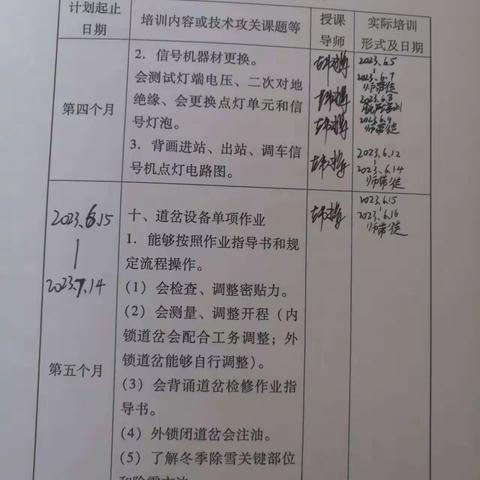 计划起止
日期
培训内容或技术攻关课题等
授课
导师
实际培训
形式及日期
第四个月
2. 信号机器材更换。
会测试灯端电压、二次对地
绝缘、会更换点灯单元和信
号灯泡。
3. 背画进站、出站、调车信
号机点灯电路图。
2023.6.5
2023.6.7
师带徒
2023.6.8
2023.6.9
师带徒
2023.6.12
2023.6.14
师带徒
2023.6.15
2023.7.14
第五个月
十、道岔设备单项作业
1. 能够按照作业指导书和规
定流程操作。
(1) 会检查、调整密贴力。
(2) 会测量、调整开程（内
锁道岔会配合工务调整；外
锁道岔能够自行调整）。
(3) 会背诵道岔检修作业指
导书。
(4) 外锁闭道岔会注油。
(5) 了解冬季除雪关键部位
2023.6.15
2023.6.16
师带徒